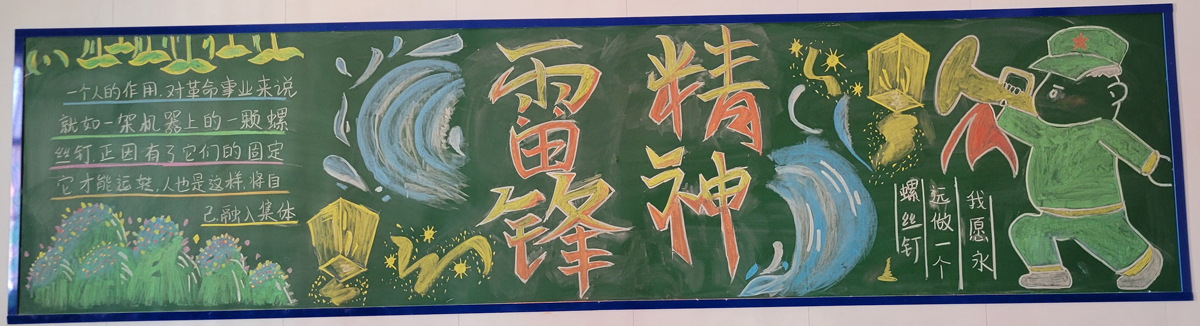 一个人的作用,对革命事业来说
就如一架机器上的一颗螺
丝钉正因有了它们的固定
它才能运转,人也是这样,将自
己融入集体
雷锋
精神
我愿永
远做一个
螺丝钉